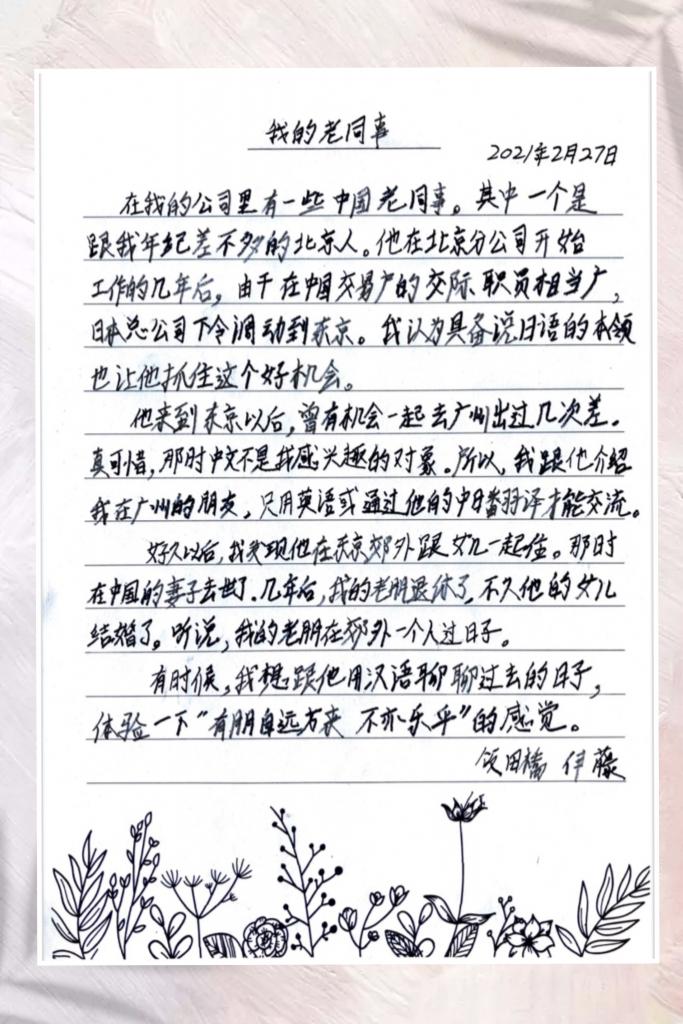 我的老同事
2021年2月27日
在我的公司里有一些中国老同事。其中一个是
跟我年纪差不多的北京人。他在北京分公司开始
工作的几年后，由于在中国交易户的交际职员相当广，
日本总公司下令调动到东京。我认为具备说日语的本领
也让他抓住这个好机会。
他来到东京以后，曾有机会一起去广州出过几次差。
真可惜，那时中文不是我感兴趣的对象。所以，我跟他介绍
我在广州的朋友，只用英语或通过他的中日翻译才能交流。
好久以后，我发现他在东京郊外跟女儿一起住。那时
在中国的妻子去世了。几年后，我的老朋退休了，不久他的女儿
结婚了。听说，我的老朋在郊外一个人过日子。
有时候，我想跟他用汉语聊聊过去的日子，
体验一下“有朋自远方来 不亦乐乎”的感觉。
饭田桥 伊藤